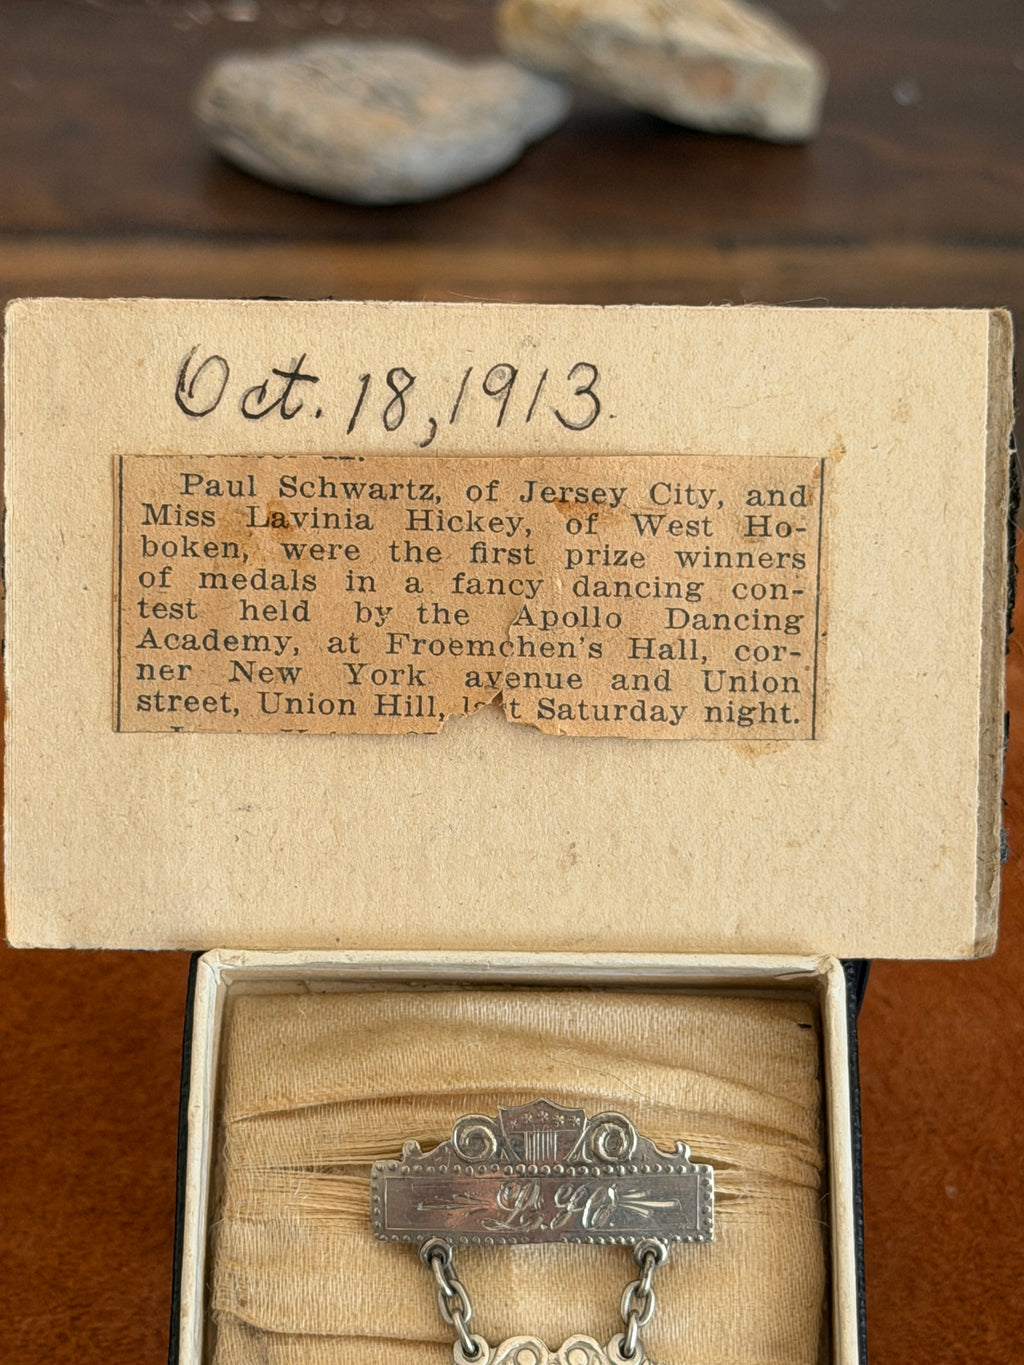 Oct. 18, 1913.
Paul Schwartz, of Jersey City, and
Miss Lavinia Hickey, of West Ho-
boken, were the first prize winners
of medals in a fancy dancing con-
test held by the Apollo Dancing
Academy, at Froemchen's Hall, cor-
ner New York avenue and Union
street, Union Hill, last Saturday night.
L. H.